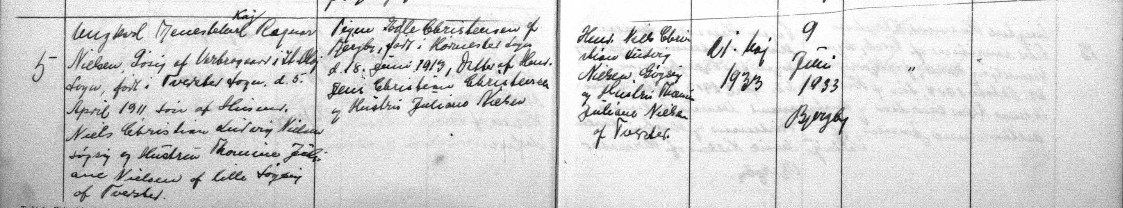 5
Ungkarl Kaj Ragnar
Nielsen, Søgsig af
Sogn, født i Tversted Sogn, d. 5.
April 1911. Søn af Husm.
Niels Christian Ludvig Nielsen
Søgsig og Hustru Thomine Juli-
ane Nielsen af lille Søgsig
af Tversted.
Pigen Edle Christensen af
Bjergby, født i Horne Sogn
d. 18. Juni 1913, Datter af Husm.
Jens Christian Christensen
og Hustru Juliane Nielsen
Husm. Niels Chri-
stian Ludvig
Nielsen, Søgsig
og Hustru Thomine
Juliane Nielsen
af Tversted.
21. Maj
1933
9
Juni
1933
Bjergby
"